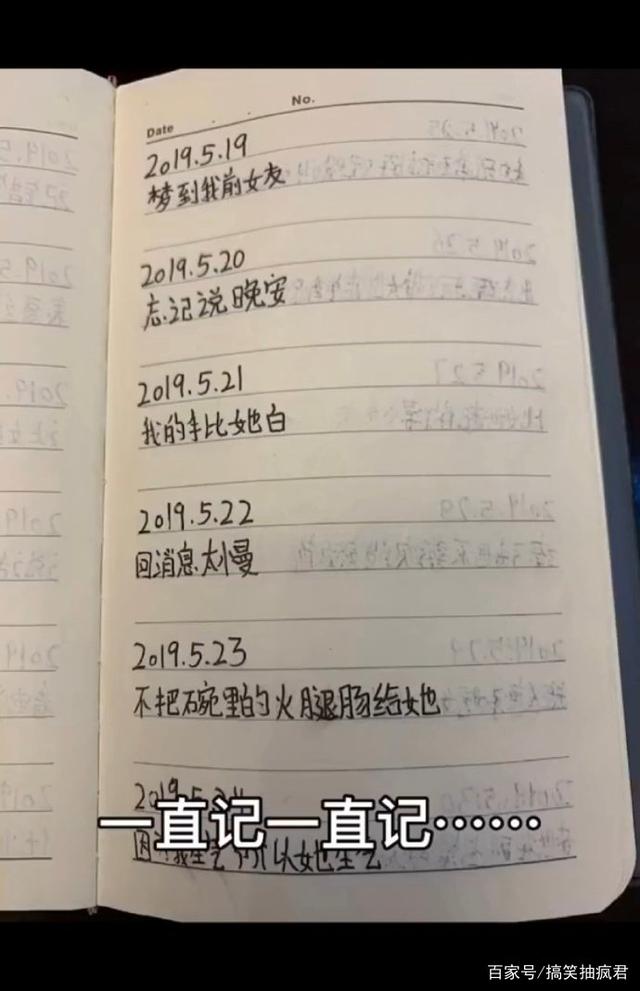 No.
Date
2019.5.19
梦到我前女友
2019.5.20
忘记说晚安
2019.5.21
我的手比她白
2019.5.22
回消息太慢
2019.5.23
不把碗里的火腿肠给她
2019.5.24
一直记一直记……
因为我生气所以她生气
百家号/搞笑抽疯君